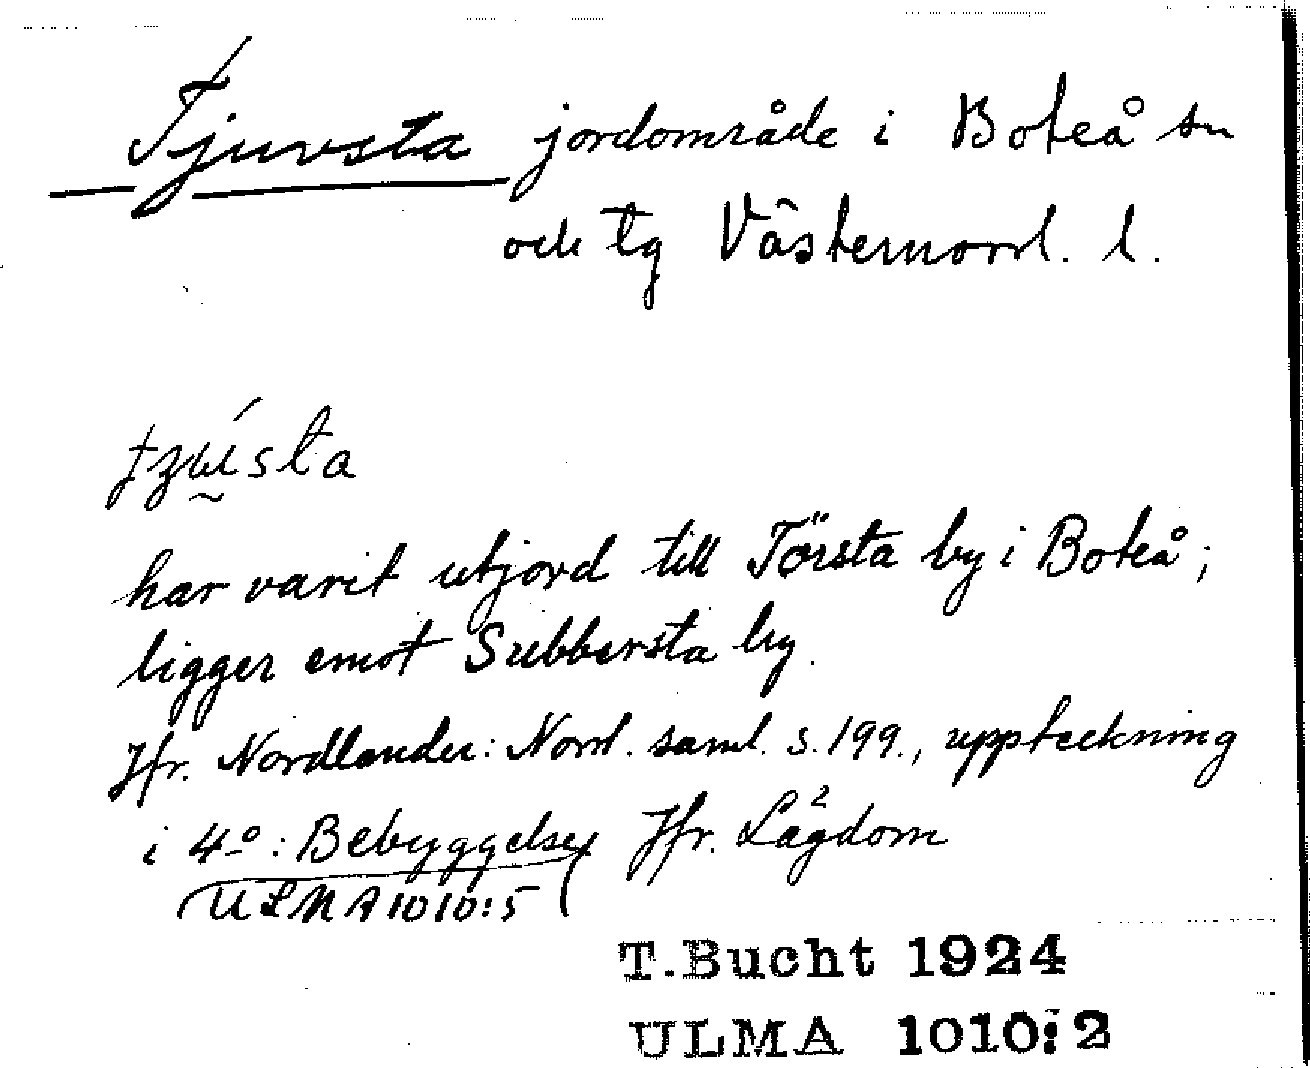 Tjuvsta jordområde i Boteå sn
och tg Västernorrl. l.
har varit utjord till Törsta by i Boteå;
ligger emot Subbersta by.
Jfr. Nordlander: Norrl. saml. s. 199., uppteckning
i 4º: Bebyggelse Jfr. Lågdom
(ULMA 1010:5)
T.Bucht 1924
ULMA 1010:2